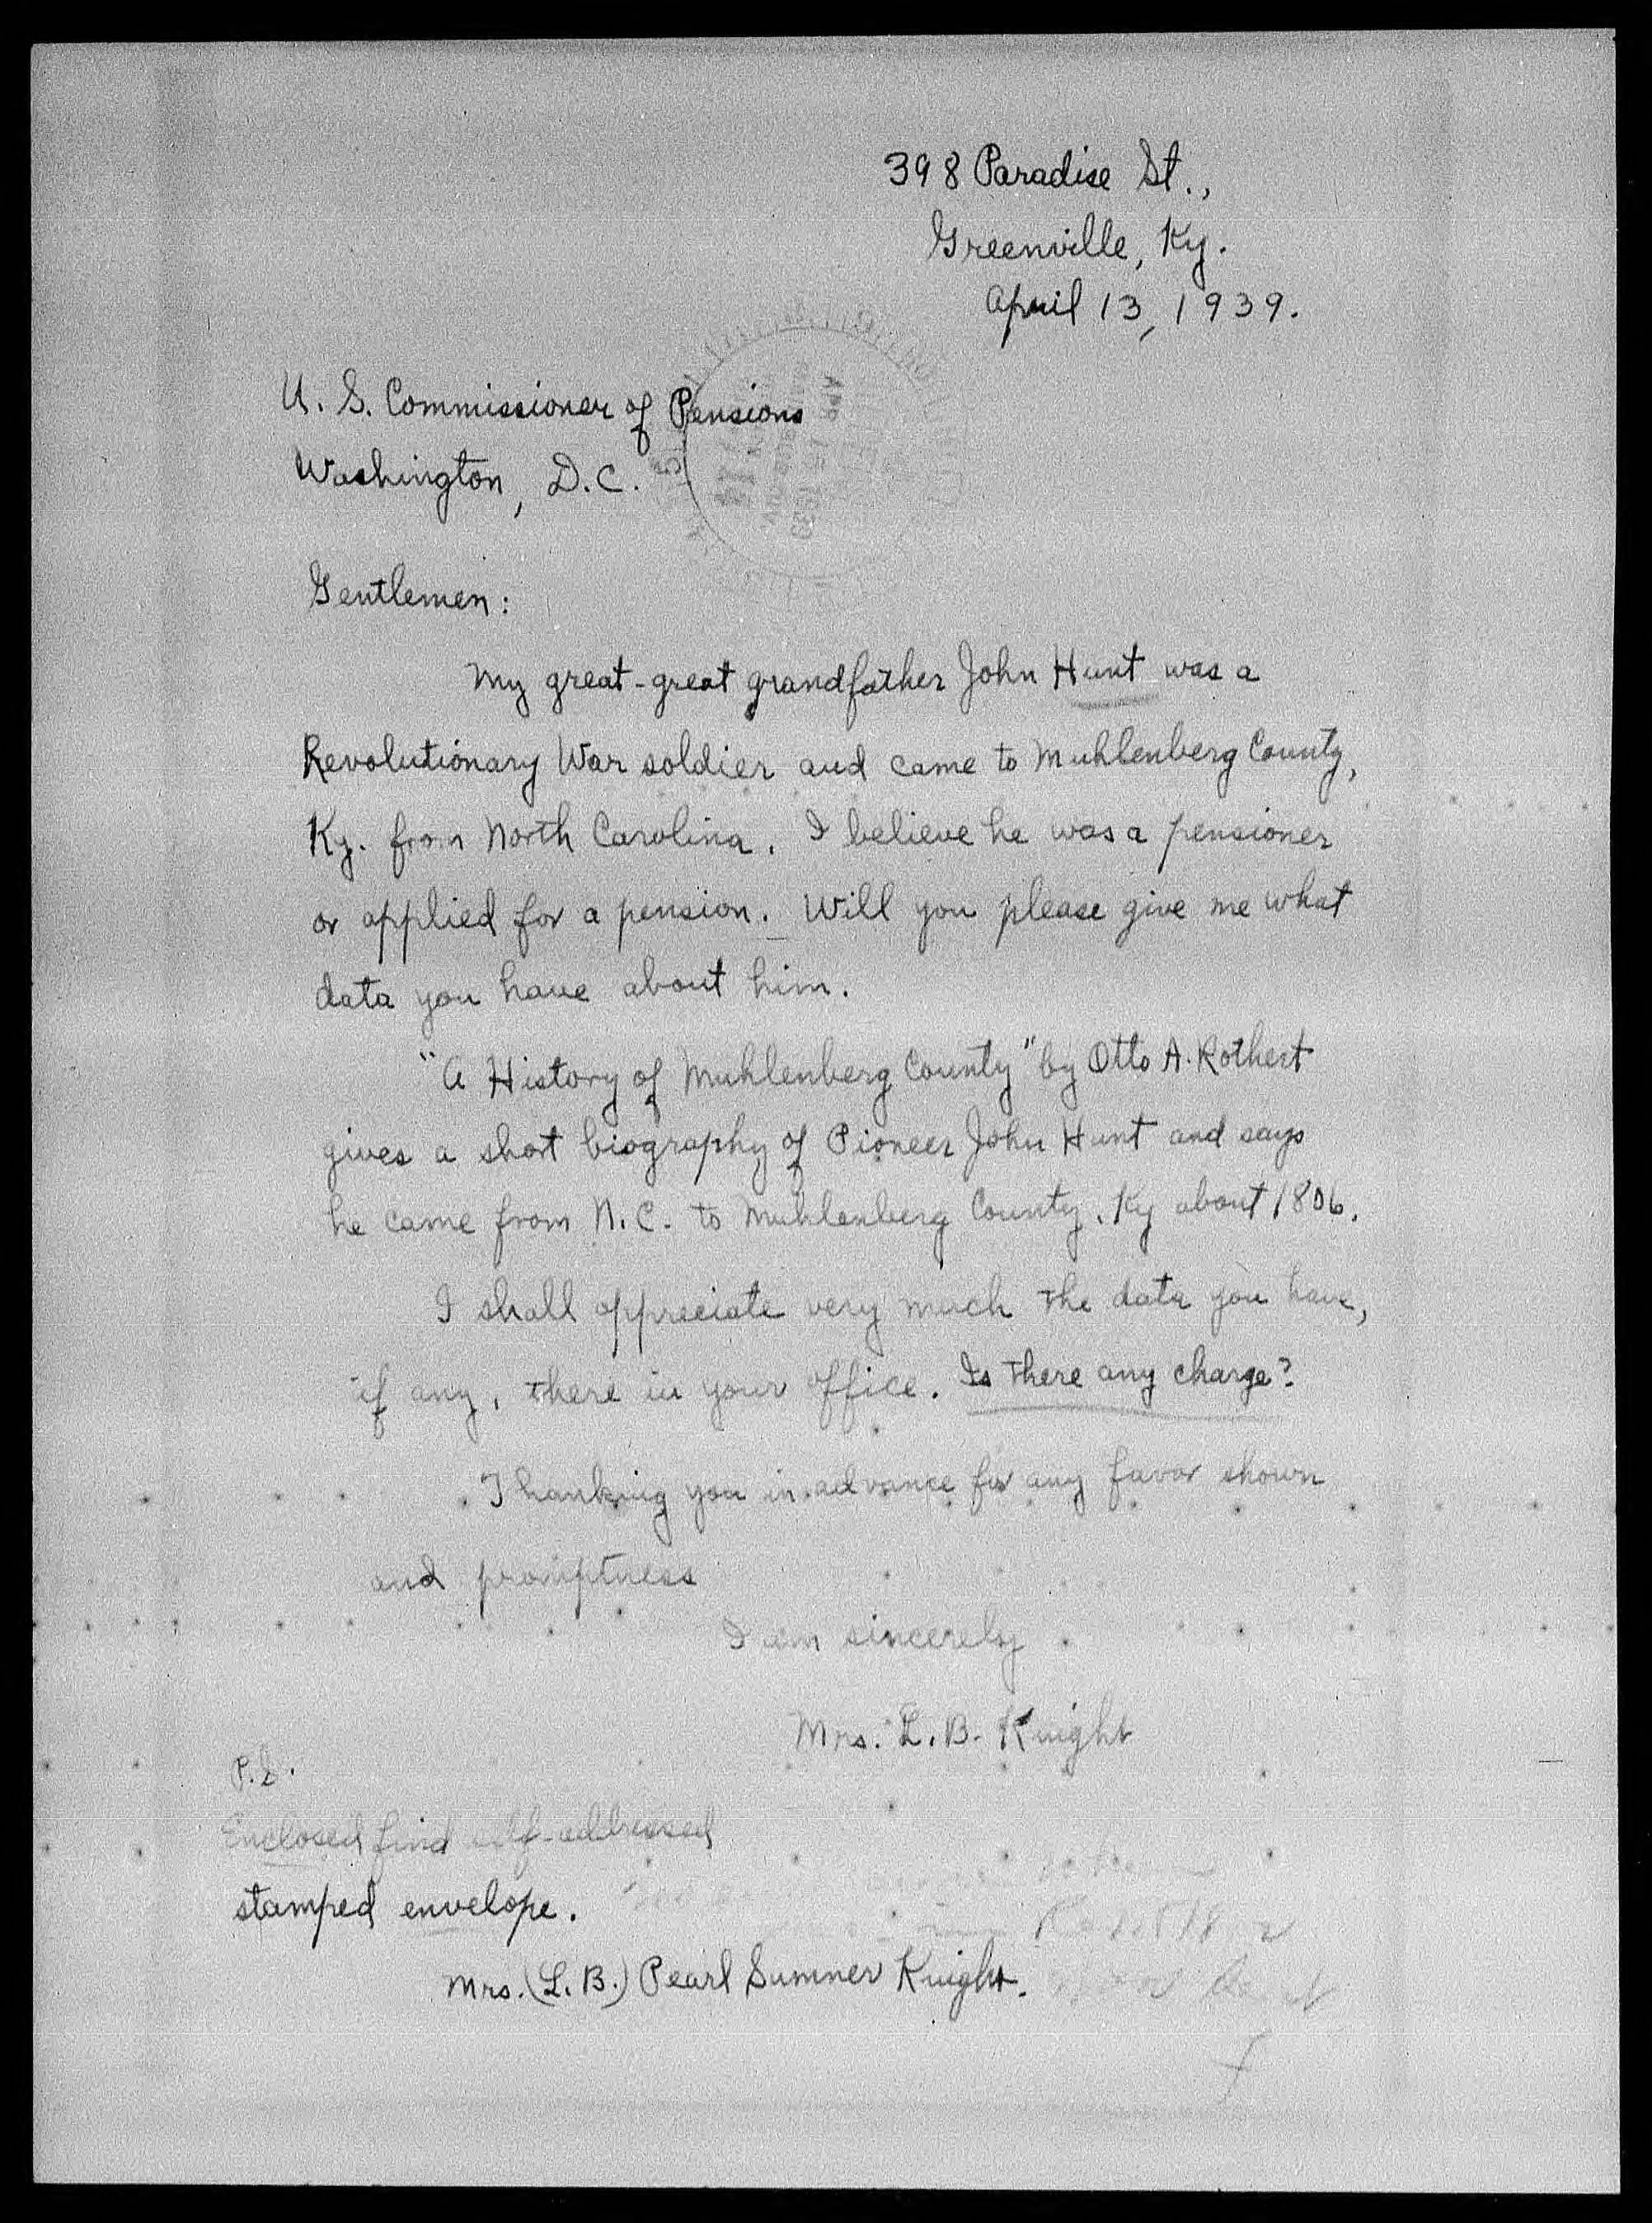 398 Paradise St.,
Greenville, Ky.
April 13, 1939.
U. S. Commissioner of Pensions
Washington, D.C.
Gentlemen:
My great-great grandfather John Hunt was a
Revolutionary War soldier and came to Muhlenberg County,
Ky. from North Carolina. I believe he was a pensioner
or applied for a pension. Will you please give me what
data you have about him.
"A History of Muhlenberg County" by Otto A. Rothert
gives a short biography of Pioneer John Hunt and says
he came from N.C. to Muhlenberg County, Ky about 1806.
I shall appreciate very much the data you have,
if any, there in your office. Is there any charge?
Thanking you in advance for any favor shown
and promptness
I am sincerely
Mrs. L. B. Knight
P.S.
Enclosed find self-addressed
stamped envelope.
Mrs. (L. B.) Pearl Sumner Knight.